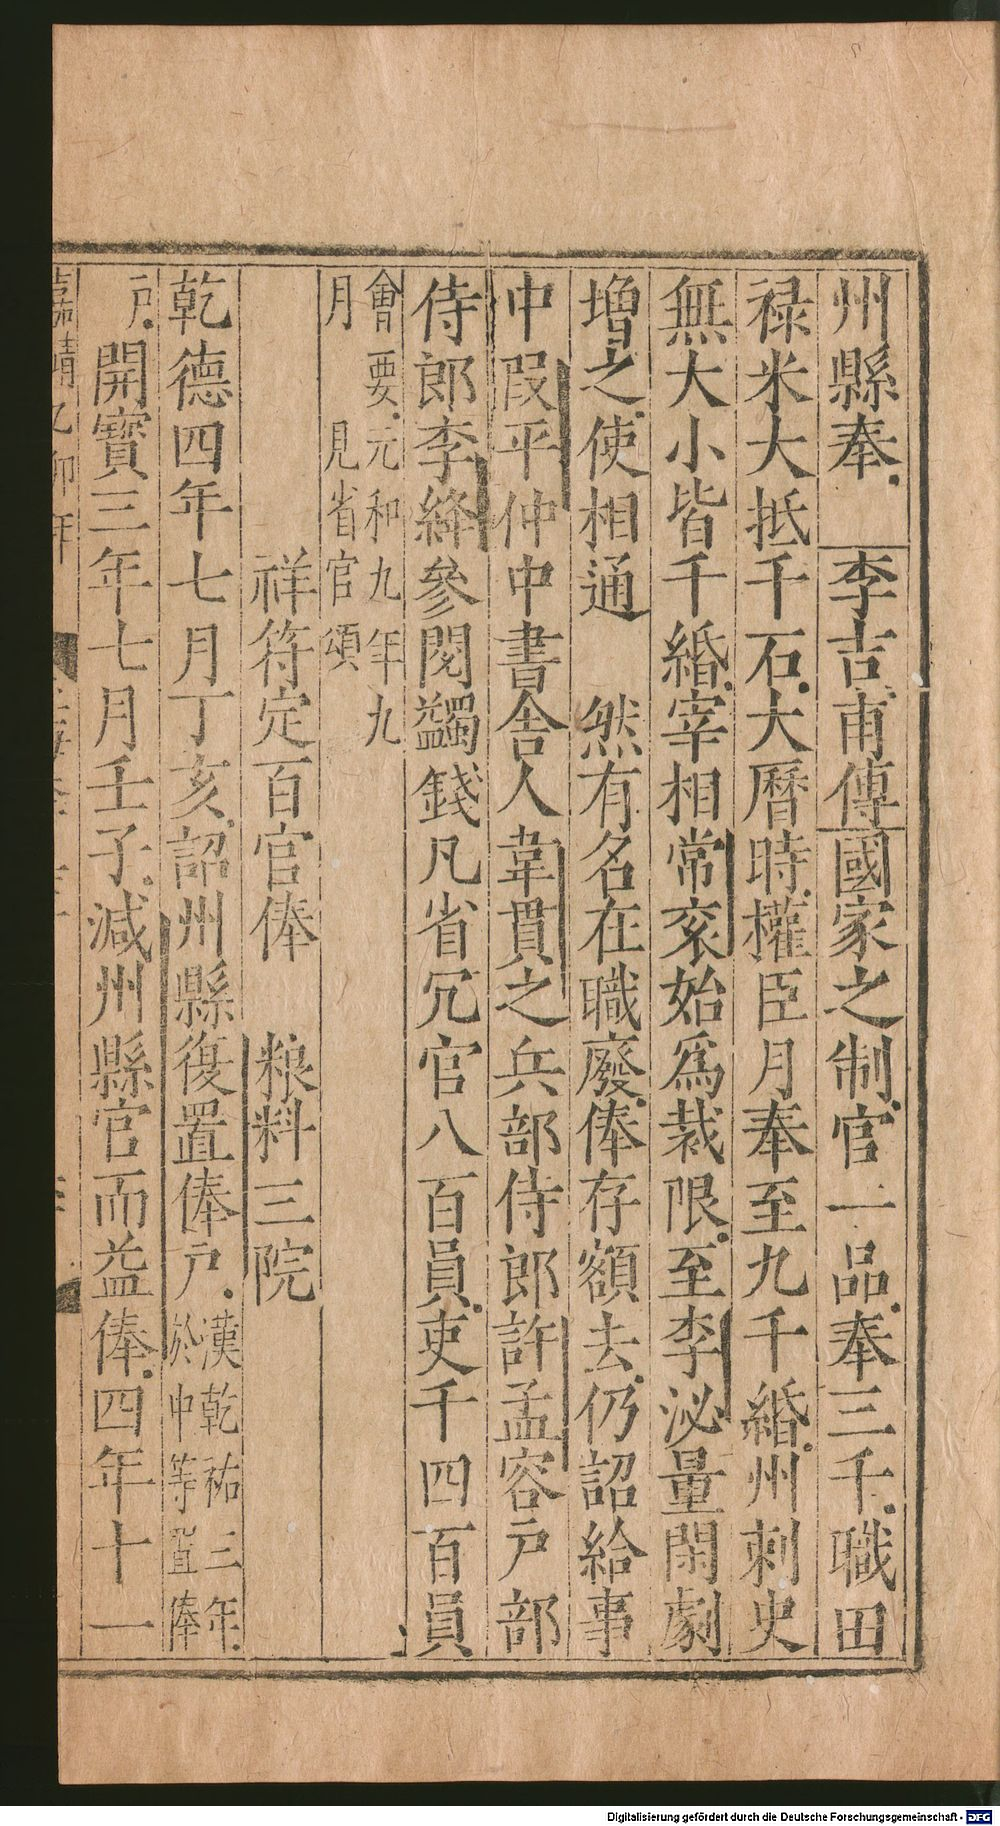 州縣奉　李吉甫傳國家之制官一品奉三千職田
禄米大抵千石大曆時權臣月奉至九千緡州刺史
無大小皆千緡宰相常衮始爲裁限至李泌量閑劇
增之使相通　然有名在職廢俸存額去仍詔給事
中叚平仲中書舍人韋貫之兵部侍郎許孟容戸部
侍郎李絳參閱蠲錢凡省冗官八百員吏千四百員
會要元和九年九
月　見省官頌
祥符定百官俸　粮料三院
乾德四年七月丁亥詔州縣復置俸戸漢乾祐三年
於中等置俸
戸開寳三年七月壬子減州縣官而益俸四年十一
嘉靖乙卯年
Digitalisierung gefördert durch die Deutsche Forschungsgemeinschaft - DFG